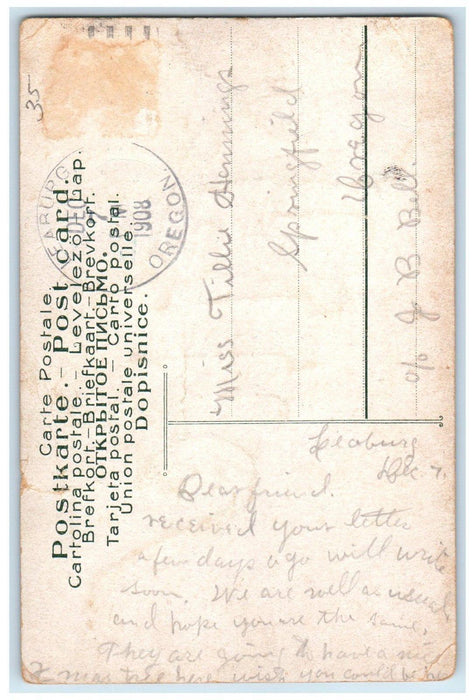 35
LEABURG
DEC
7
1908
OREGON.
Carte Postale.
Postkarte. – Post card.
Cartolina postale. – Levelező-Lap.
Brefkort.-Briefkaart.-Brevkort.
ОТКРЫТОЕ ПИСЬМО.
Tarjeta postal. – Carto postal.
Union postale universelle
Dopisnice.
Miss Tillie Hennings
Springfield
Oregon
c/o J B Bell.
Leaburg
Dec 7.
Dear friend.
received your letter
a few days ago will write
soon. We are well as usual
and hope you are the same.
They are going to have a
Xmas tree here wish you could be